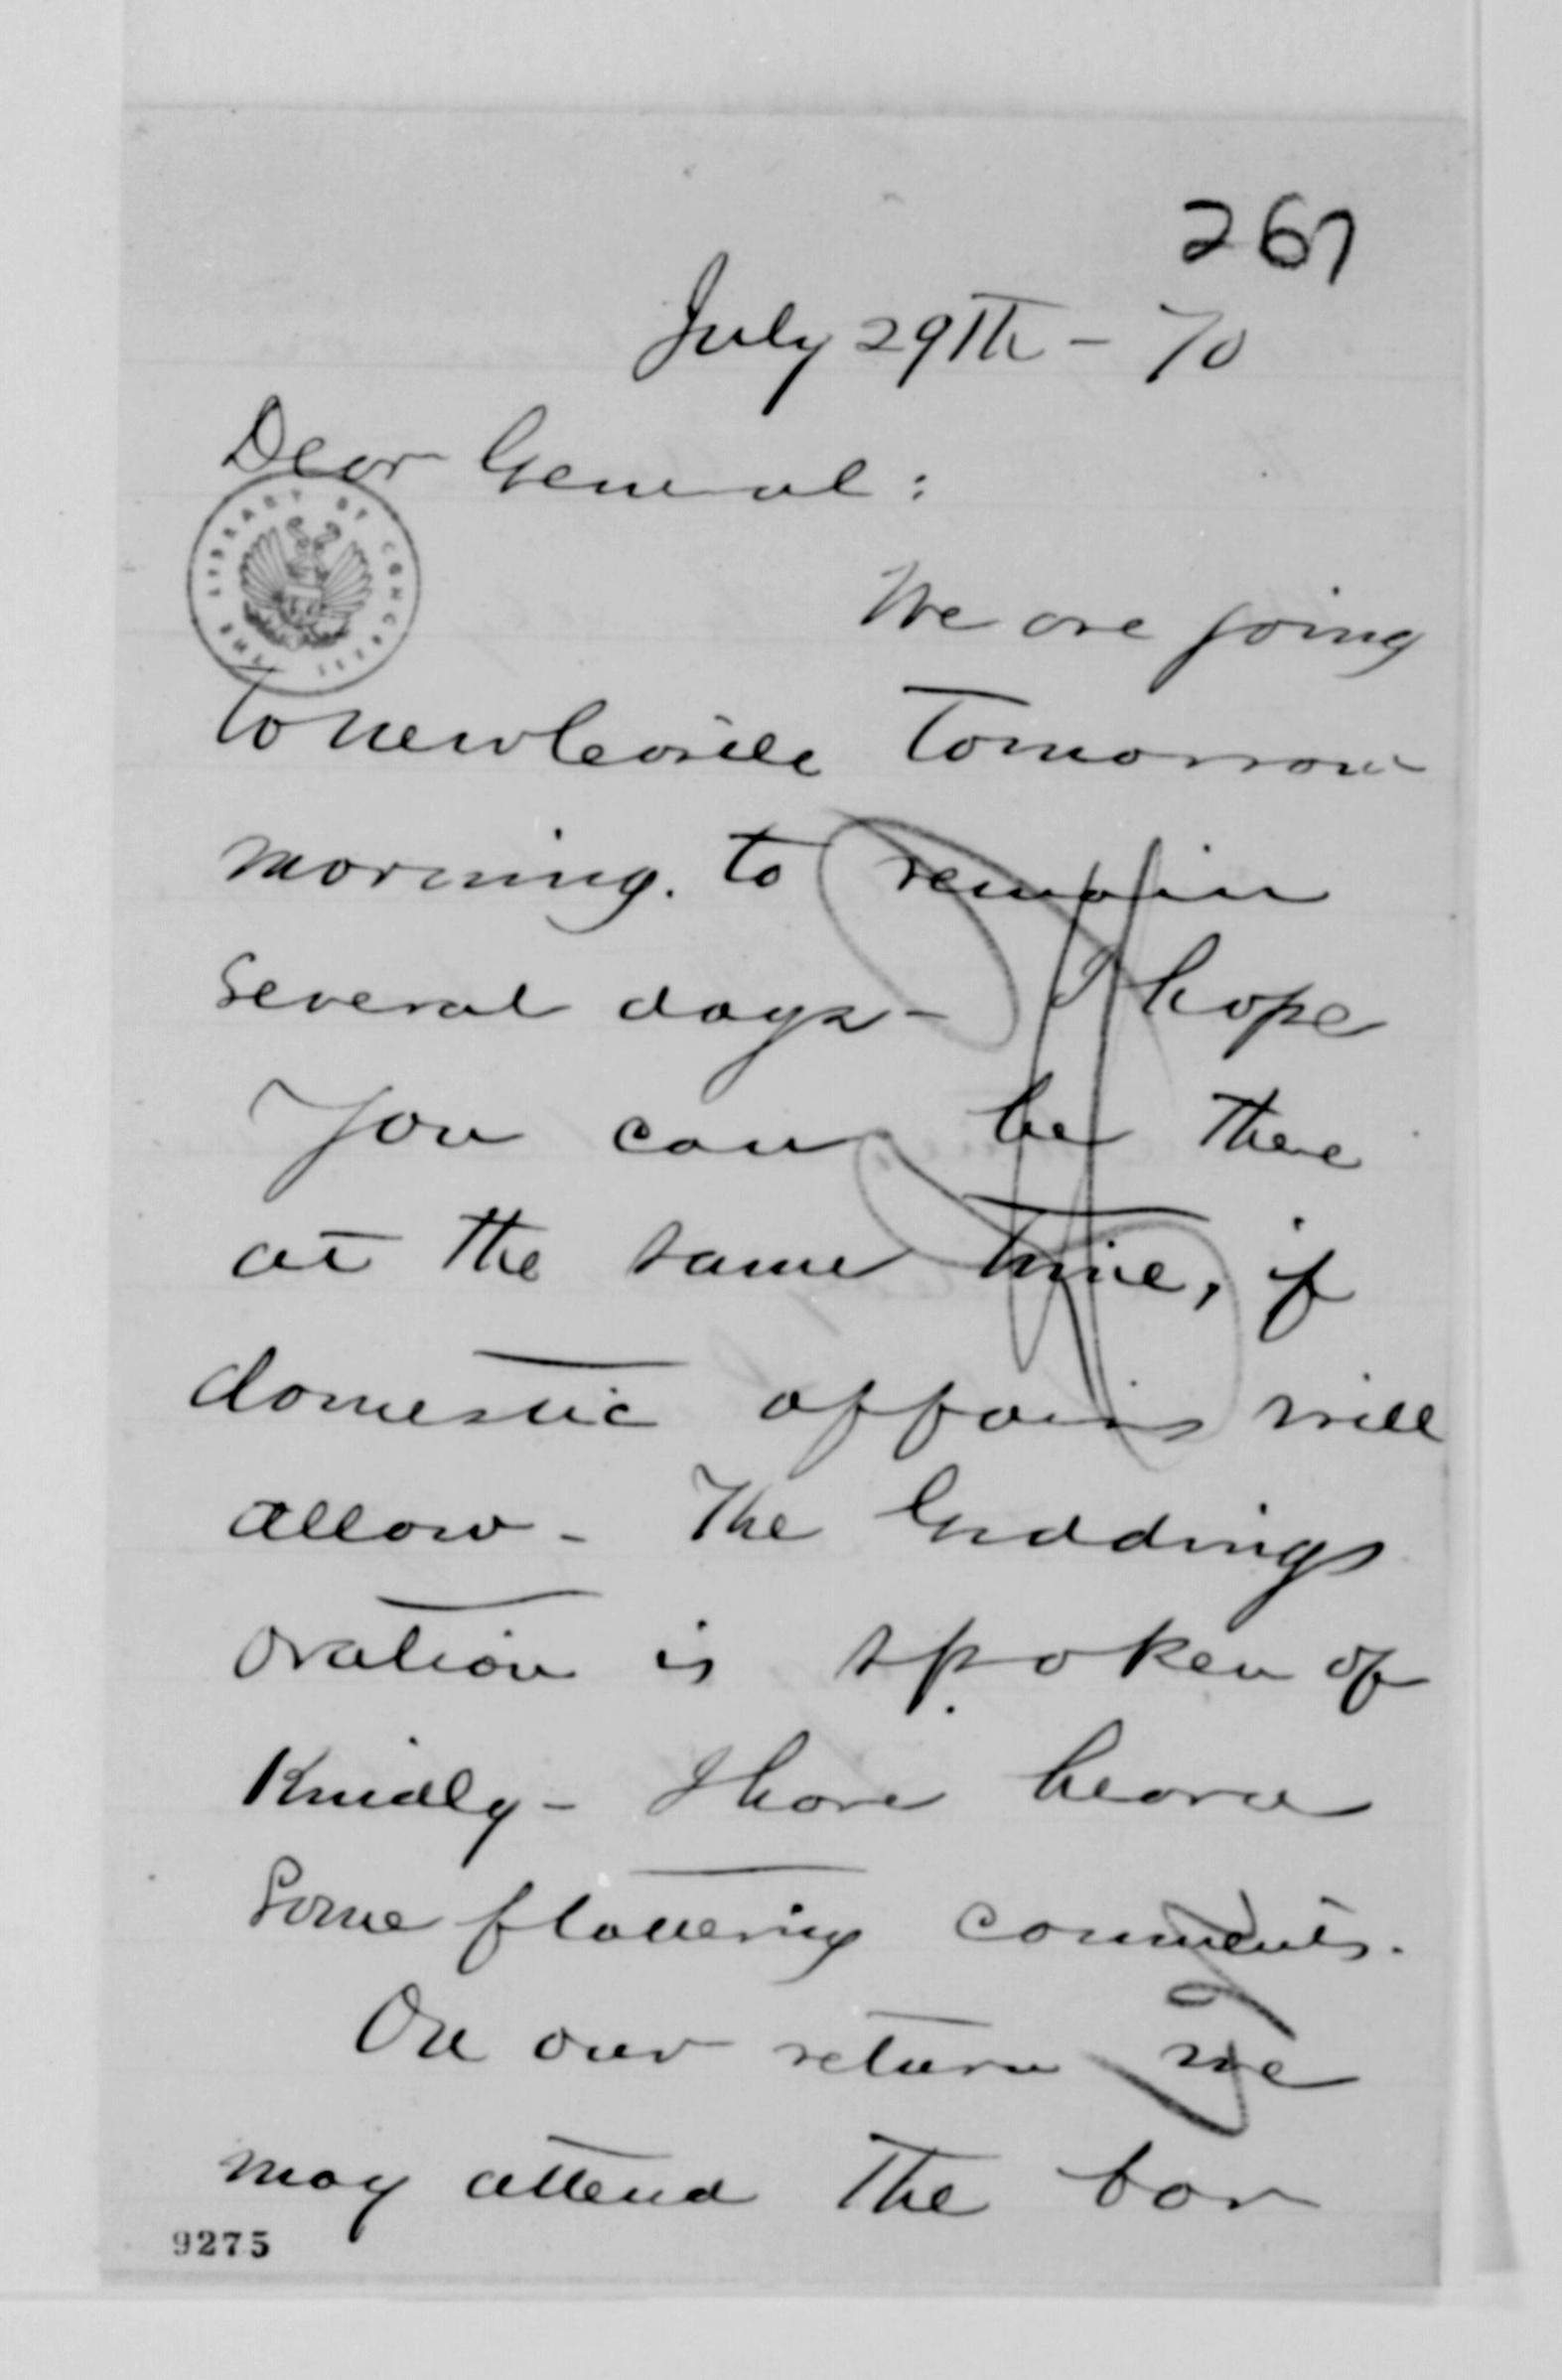 267
July 29Th - 70
Dear General:
THE LIBRARY OF CONGRESS
We are going
to New Castle Tomorrow
morning. to remain
several days - I hope
You can be there
at the same time, if
domestic affairs will
allow - The Giddings
oration is spoken of
Kindly - I have heard
some flattering comments.
On our return we
may attend the bar
9275